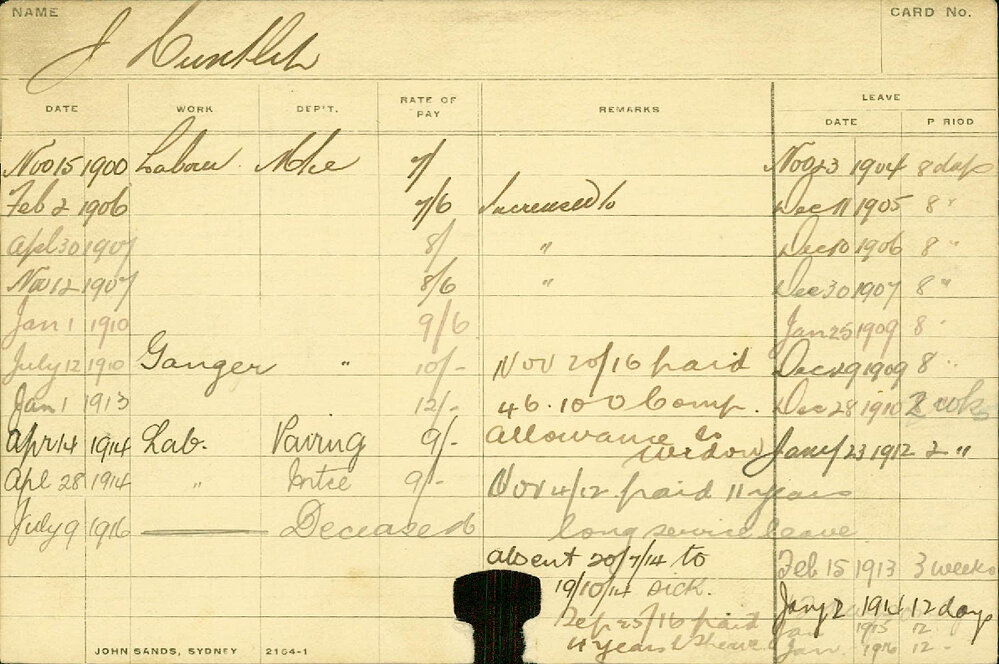 NAME CARD No.
J
DATE WORK DEP'T. RATE OF PAY REMARKS LEAVE
DATE P RIOD
Nov 15 1900 Labour Mtce 7/ Nov 23 1904 8 days
Feb 2 1906 7/6 Increased to Dec 11 1905 8 "
Apl 30 1907 8/ " Dec 10 1906 8 "
Nov 12 1907 8/6 " Dec 30 1907 8 "
Jan 1 1910 9/6 Jan 25 1909 8 "
July 12 1910 Ganger " 10/- Nov 20/16 paid Dec 29 1909 8 "
Jan 1 1913 12/- 46.10.0 Comp. Dec 28 1910 2 wks
Apr 14 1914 Lab. Paving 9/- Allowance to widow Jany 23 1912 2 "
Apl 28 1914 " Mtce 9/- Nov 4/12 paid 11 years
July 9 1916 Deceased long service leave
Absent 20/7/14 to Feb 15 1913 3 weeks
19/10/14 sick. Jany 2 1914 12 days
Sep 25/16 paid Jan 1915 12 "
4 years Jan. 1916 12 -
JOHN SANDS, SYDNEY 2164-1